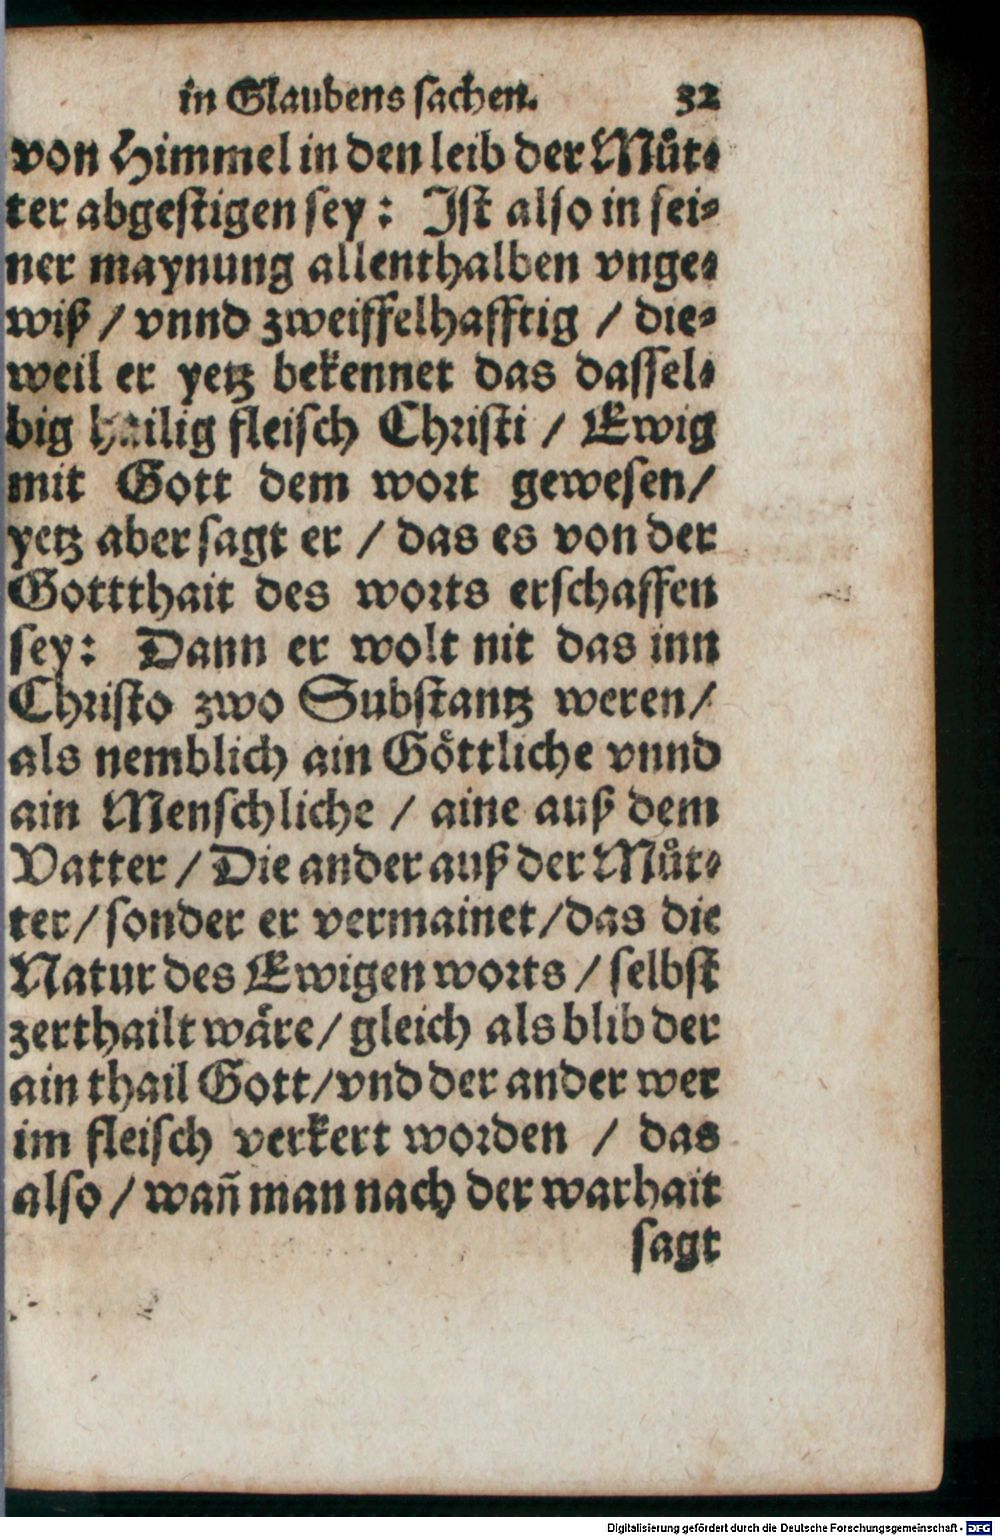 in Glaubens sachen. 32
von Himmel in den leib der Můt⸗
ter abgestigen sey: Jst also in sei⸗
ner maynung allenthalben vnge⸗
wiß / vnnd zweiffelhafftig / die⸗
weil er yetz bekennet das dassel⸗
big hailig fleisch Christi / Ewig
mit Gott dem wort gewesen/
yetz aber sagt er / das es von der
Gottthait des worts erschaffen
sey: Dann er wolt nit das inn
Christo zwo Substantz weren/
als nemblich ain Göttliche vnnd
ain Menschliche / aine auß dem
Vatter / Die ander auß der Můt⸗
ter/ sonder er vermainet/das die
Natur des Ewigen worts / selbst
zerthailt wäre/ gleich als blib der
ain thail Gott/vnd der ander wer
im fleisch verkert worden / das
also / wañ man nach der warhait
sagt
Digitalisierung gefördert durch die Deutsche Forschungsgemeinschaft - DFG